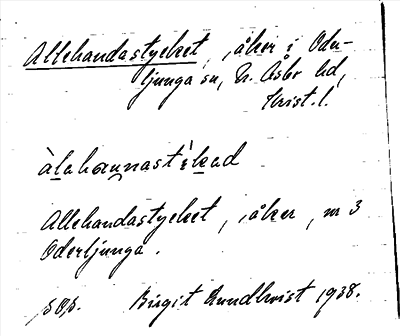 Allehandastycket, åker i Oder-
ljunga sn, N. Åsbo hd,
Krist. l.
àlahannastìkad
Allehandastycket, åker, nr 3
Oderljunga.
sOs. Birgit Rundkvist 1938.